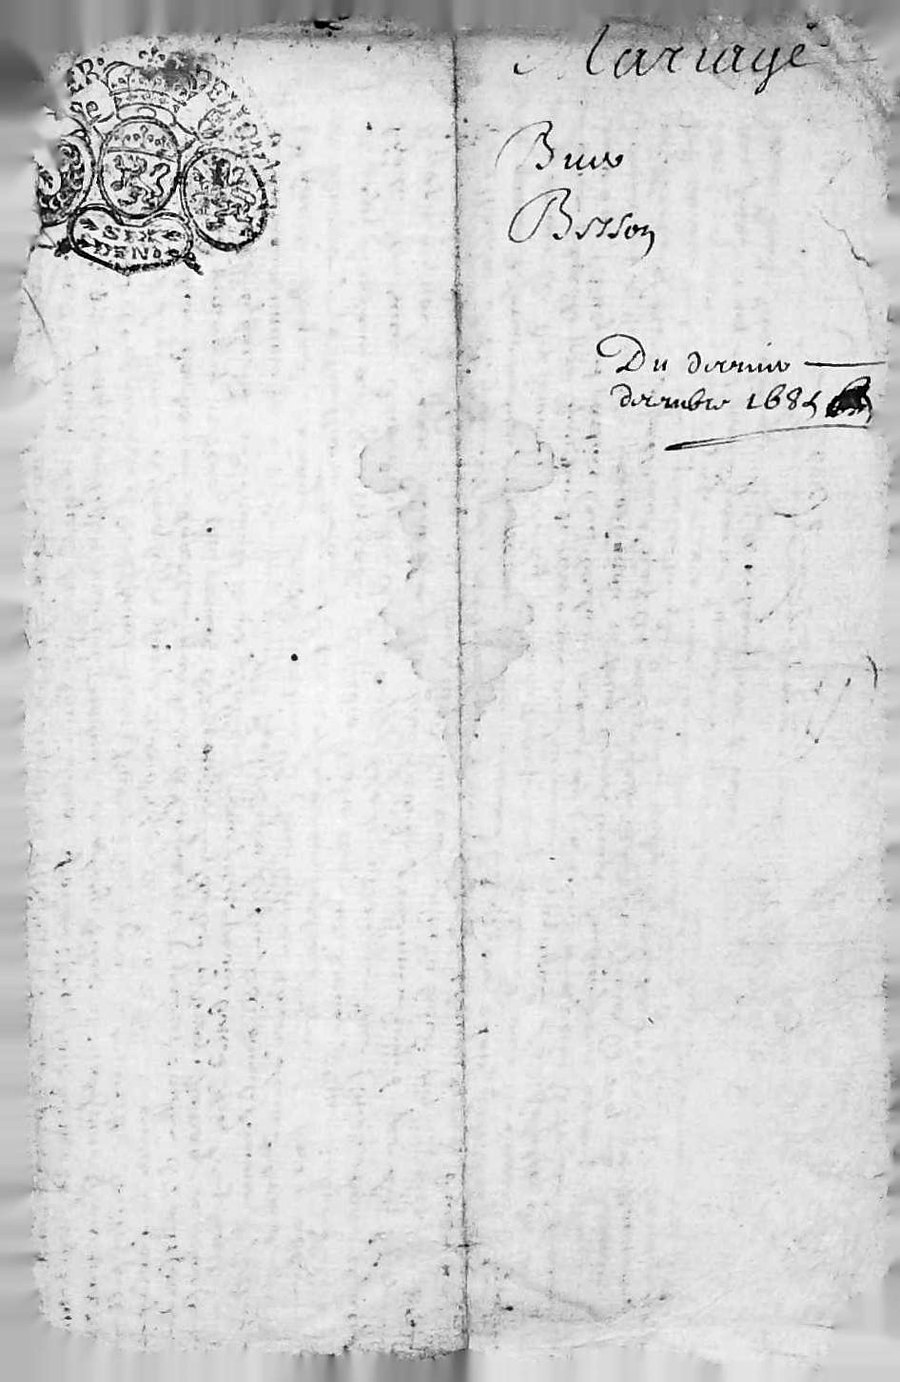 SIX
DEN.
Mariage
Bisson
Du dernier
decembre 1684